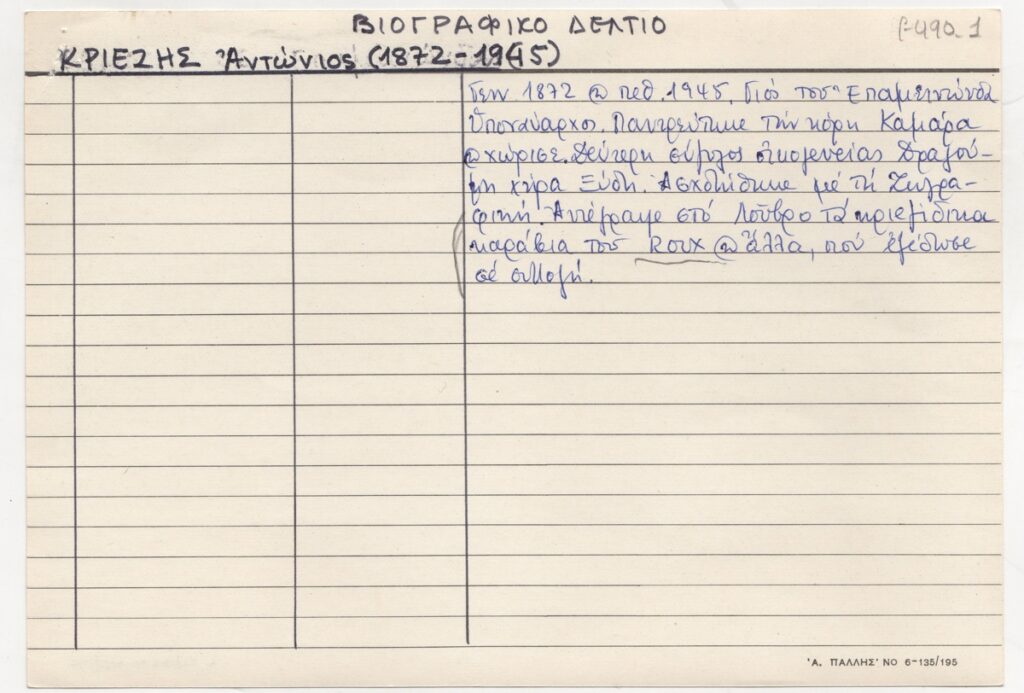 ΒΙΟΓΡΑΦΙΚΟ ΔΕΛΤΙΟ
β-490.1
ΚΡΙΕΖΗΣ Ἀντώνιος (1872-1945)
Γεν 1872 @ πεθ. 1945. Γιός τοῦ Ἐπαμεινώνδα
Ὑποναύαρχος. Παντρεύτηκε τήν κόρη Καμάρα
@ χώρισε. Δεύτερη σύζυγος οἰκογενείας Δραγού-
μη χήρα Ξύδη. Ἀσχολήθηκε μέ τή Ζωγρα-
φική. Ἀντέγραψε στό Λοῦβρο τά κριεζίδικα
καράβια τοῦ Roux @ ἄλλα, πού ἐξέδωσε
σέ συλλογή.
'Α. ΠΑΛΛΗΣ' ΝΟ 6-135/195